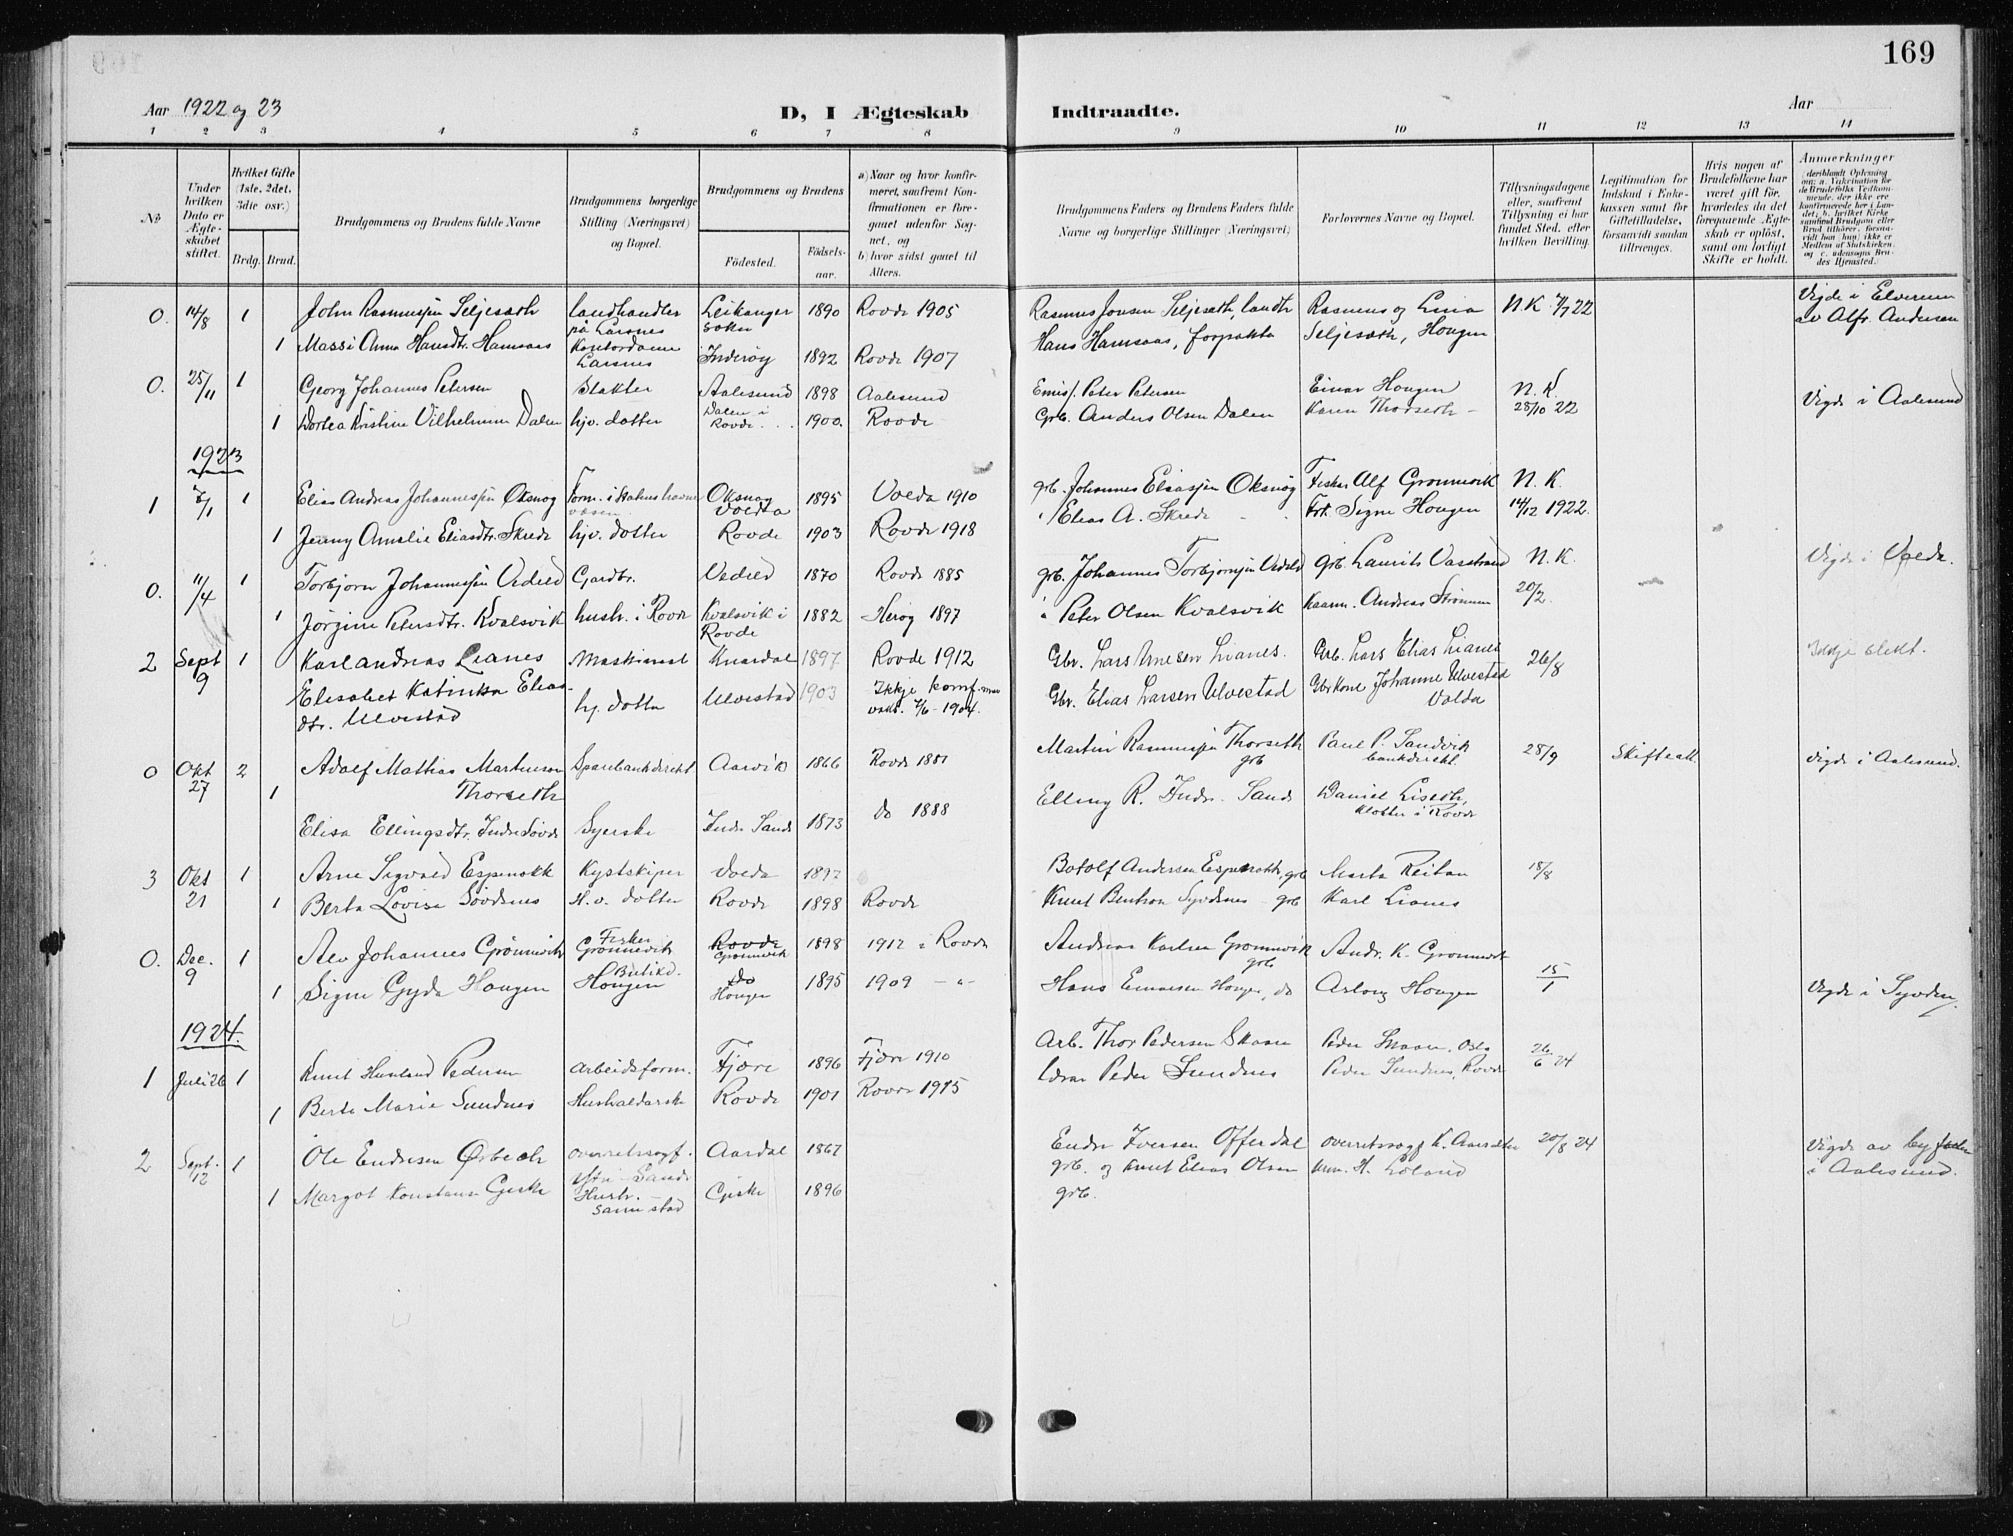 169
Aar 1922 og 23
D, I Ægteskab Indtraadte.
Aar
1 2 3 4 5 6 7 8 9 10 11 12 13 14
No
Under hvilken Dato er Ægteskabet stiftet.
Hvilket Gifte (1ste, 2det, 3die osv.)
Brdg. Brud.
Brudgommens og Brudens fulde Navne
Brudgommens borgerlige Stilling (Næringsvei) og Bopæl.
Brudgommens og Brudens
Fødested.
Fødselsaar.
a) Naar og hvor konfirmeret, saafremt Konfirmationen er foregaaet udenfor Sognet, og
b) hvor sidst gaaet til Alters.
Brudgommens Faders og Brudens Faders fulde Navne og borgerlige Stillinger (Næringsvei)
Forlovernes Navne og Bopæl.
Tillysningsdagene eller, saafremt Tillysning ei har fundet Sted, efter hvilken Bevilling.
Legitimation for Indskud i Enkekassen samt for Giftetilladelse, forsaavidt saadan tiltrænges.
Hvis nogen af Brudefolkene har været gift før, hvorledes da det foregaaende Ægteskab er opløst, samt om lovligt Skifte er holdt.
Anmærkninger
0. 14/8 1 John Rasmussjen Seljesæth landhandler på Larsnes Leikanger sokn 1890 Rovde 1905 Rasmus Jonsen Seljesæth, landh Rasmus og Lina N.K. 22 Vigde i Elverum av Alfr. Andersen
1 Massi Anna Hansdtr. Hamsaas Kontordame Larsnes Inderøy 1892 Rovde 1907 Hans Hamsaas, forpakter Seljesæth, Hougen
0. 25/11 1 Georg Johannes Petersen Slakter Aalesund 1898 Aalesund Peter Petersen Einar Hougen N.K. Vigde i Aalesund
1 Dortea Kristine Vilhelmine Dalen hjv. dotter Dalen i Rovde 1900 Rovde Grb. Anders Olsen Dalen Karen Thorseth 28/10 22
1923
1 1 Elias Andreas Johannessjen Oksnøg Form. i statens havnevæsen Oksnøg Voldta 1895 Volda 1910 grb. Johannes Eliassjen Oksnøg Fisker Alf Grønnevik N.K.
1 Jenny Amalie Eliasdtr. Skrede hjv. dotter Rovde 1903 Rovde 1918 Elias A. Skrede Frk. Signe Hougen 14/12 1922
0. 11/4 1 Torbjørn Johannessjen Vedeld Gardbr. Vedeld 1870 Rovde 1885 grb. Johannes Torbjørnsjen Vedeld Grb. Laurits Vasstrand N.K. Vigde i Volda.
1 Jørgine Petersdtr. Kvalsvik hustr. i Rovde Kvalsvik i Rovde 1882 Herøy 1897 Peter Olsen Kvalsvik Andreas Strømmen 20/2.
2 Sept 9 1 Karl Andreas Lianes Maskinist Knardal 1897 Rovde 1912 Gbr. Lars Arnesen Lianes. Grb. Lars Elias Lianes 26/8 Ikkje slekt.
Elisabet Katinka Eliasdtr. Ulvestad hj. dotter Ulvestad 1903 Ikkje komf. men vaks. 7/6-1904. Gbr. Elias Larsen Ulvestad Gbr kone Johanne Ulvestad Volda
0 Okt 27 2 Adolf Mathias Martinsen Thorseth Sparebankdirekt Aarvik 1866 Rovde 1881 Martin Rasmussjen Thorseth grb Paul P. Sandvik bankdirekt. 28/9 Skifteatt. Vigde i Aalesund.
1 Elisa Ellingsdtr. Indre Søvde Syerske Indre Sande 1873 do 1888 Elling R. Indr. Sande Daniel Liseth, Kloster i Rovde
3 Okt 21 1 Arne Sigvald Espenakk Kystskiper Volda 1897 Botolf Andersen Espenakk, grb Marta Reitan 18/8
1 Berta Lovise Søvdsnes H.v. dotter Rovde 1898 Rovde Knut Bentson Syvdsnes grb Karl Lianes
0. Dec. 9 1 Alv Johannes Grønnevik Fisker Grønnevik Rovde Grønnevik 1898 1912 i Rovde Andreas Karlsen Grønnevik grb Andr. K. Grønnevik 15/1
1 Signe Gyda Hougen Butikd. Hougen do Hougen 1895 1909 -"- Hans Einarsen Hougen, do Aslaug Hougen Vigde i Syvden.
1924.
1 Juli 26 1 Knut Pedersen Arbeidsform. Fjære 1896 Fjære 1910 Arb. Thor Pedersen Skaare Peder Skaare, Oslo 26/6 24
1 Berte Marie Sundnes Hushaldarske Rovde 1901 Rovde 1915 Peder Sundnes Peder Sundnes, Rovde
2 Sept. 12 1 Ole Endresen Ørbech overretssagf. Ytre Sande Aardal 1867 Endre Iversen Offerdal grb. og Knut Elias Olsen grb. overretssagf K. Aarseter H. Loland 20/8 24 Vigde av byfuten i Aalesund.
1 Margot Konstanse Giske Hustr. samme stad Giske 1896